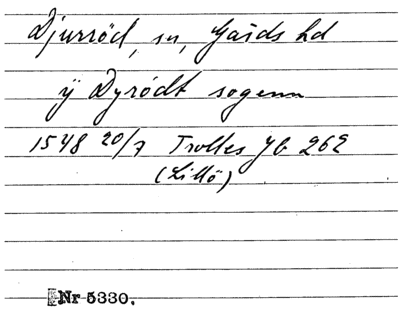 Djurröd, sn, Gärds hd
ÿ Dyrödt sogenn
1548 20/7 Trolles Jb 262
(Lillö)
Nr 5330.